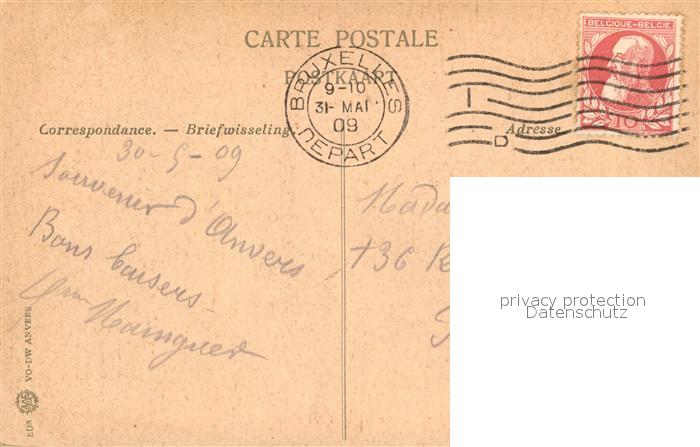 CARTE POSTALE
POSTKAART
BRUXELLES
9-10
31- MAI
09
DEPART
BELGIQUE-BELGIE
10
D
Correspondance. — Briefwisseling.
Adresse
30-5-09
Souvenir d'Anvers
Bons baisers
Mada
136 R
EDN VO-DW ANVERS
privacy protection
Datenschutz